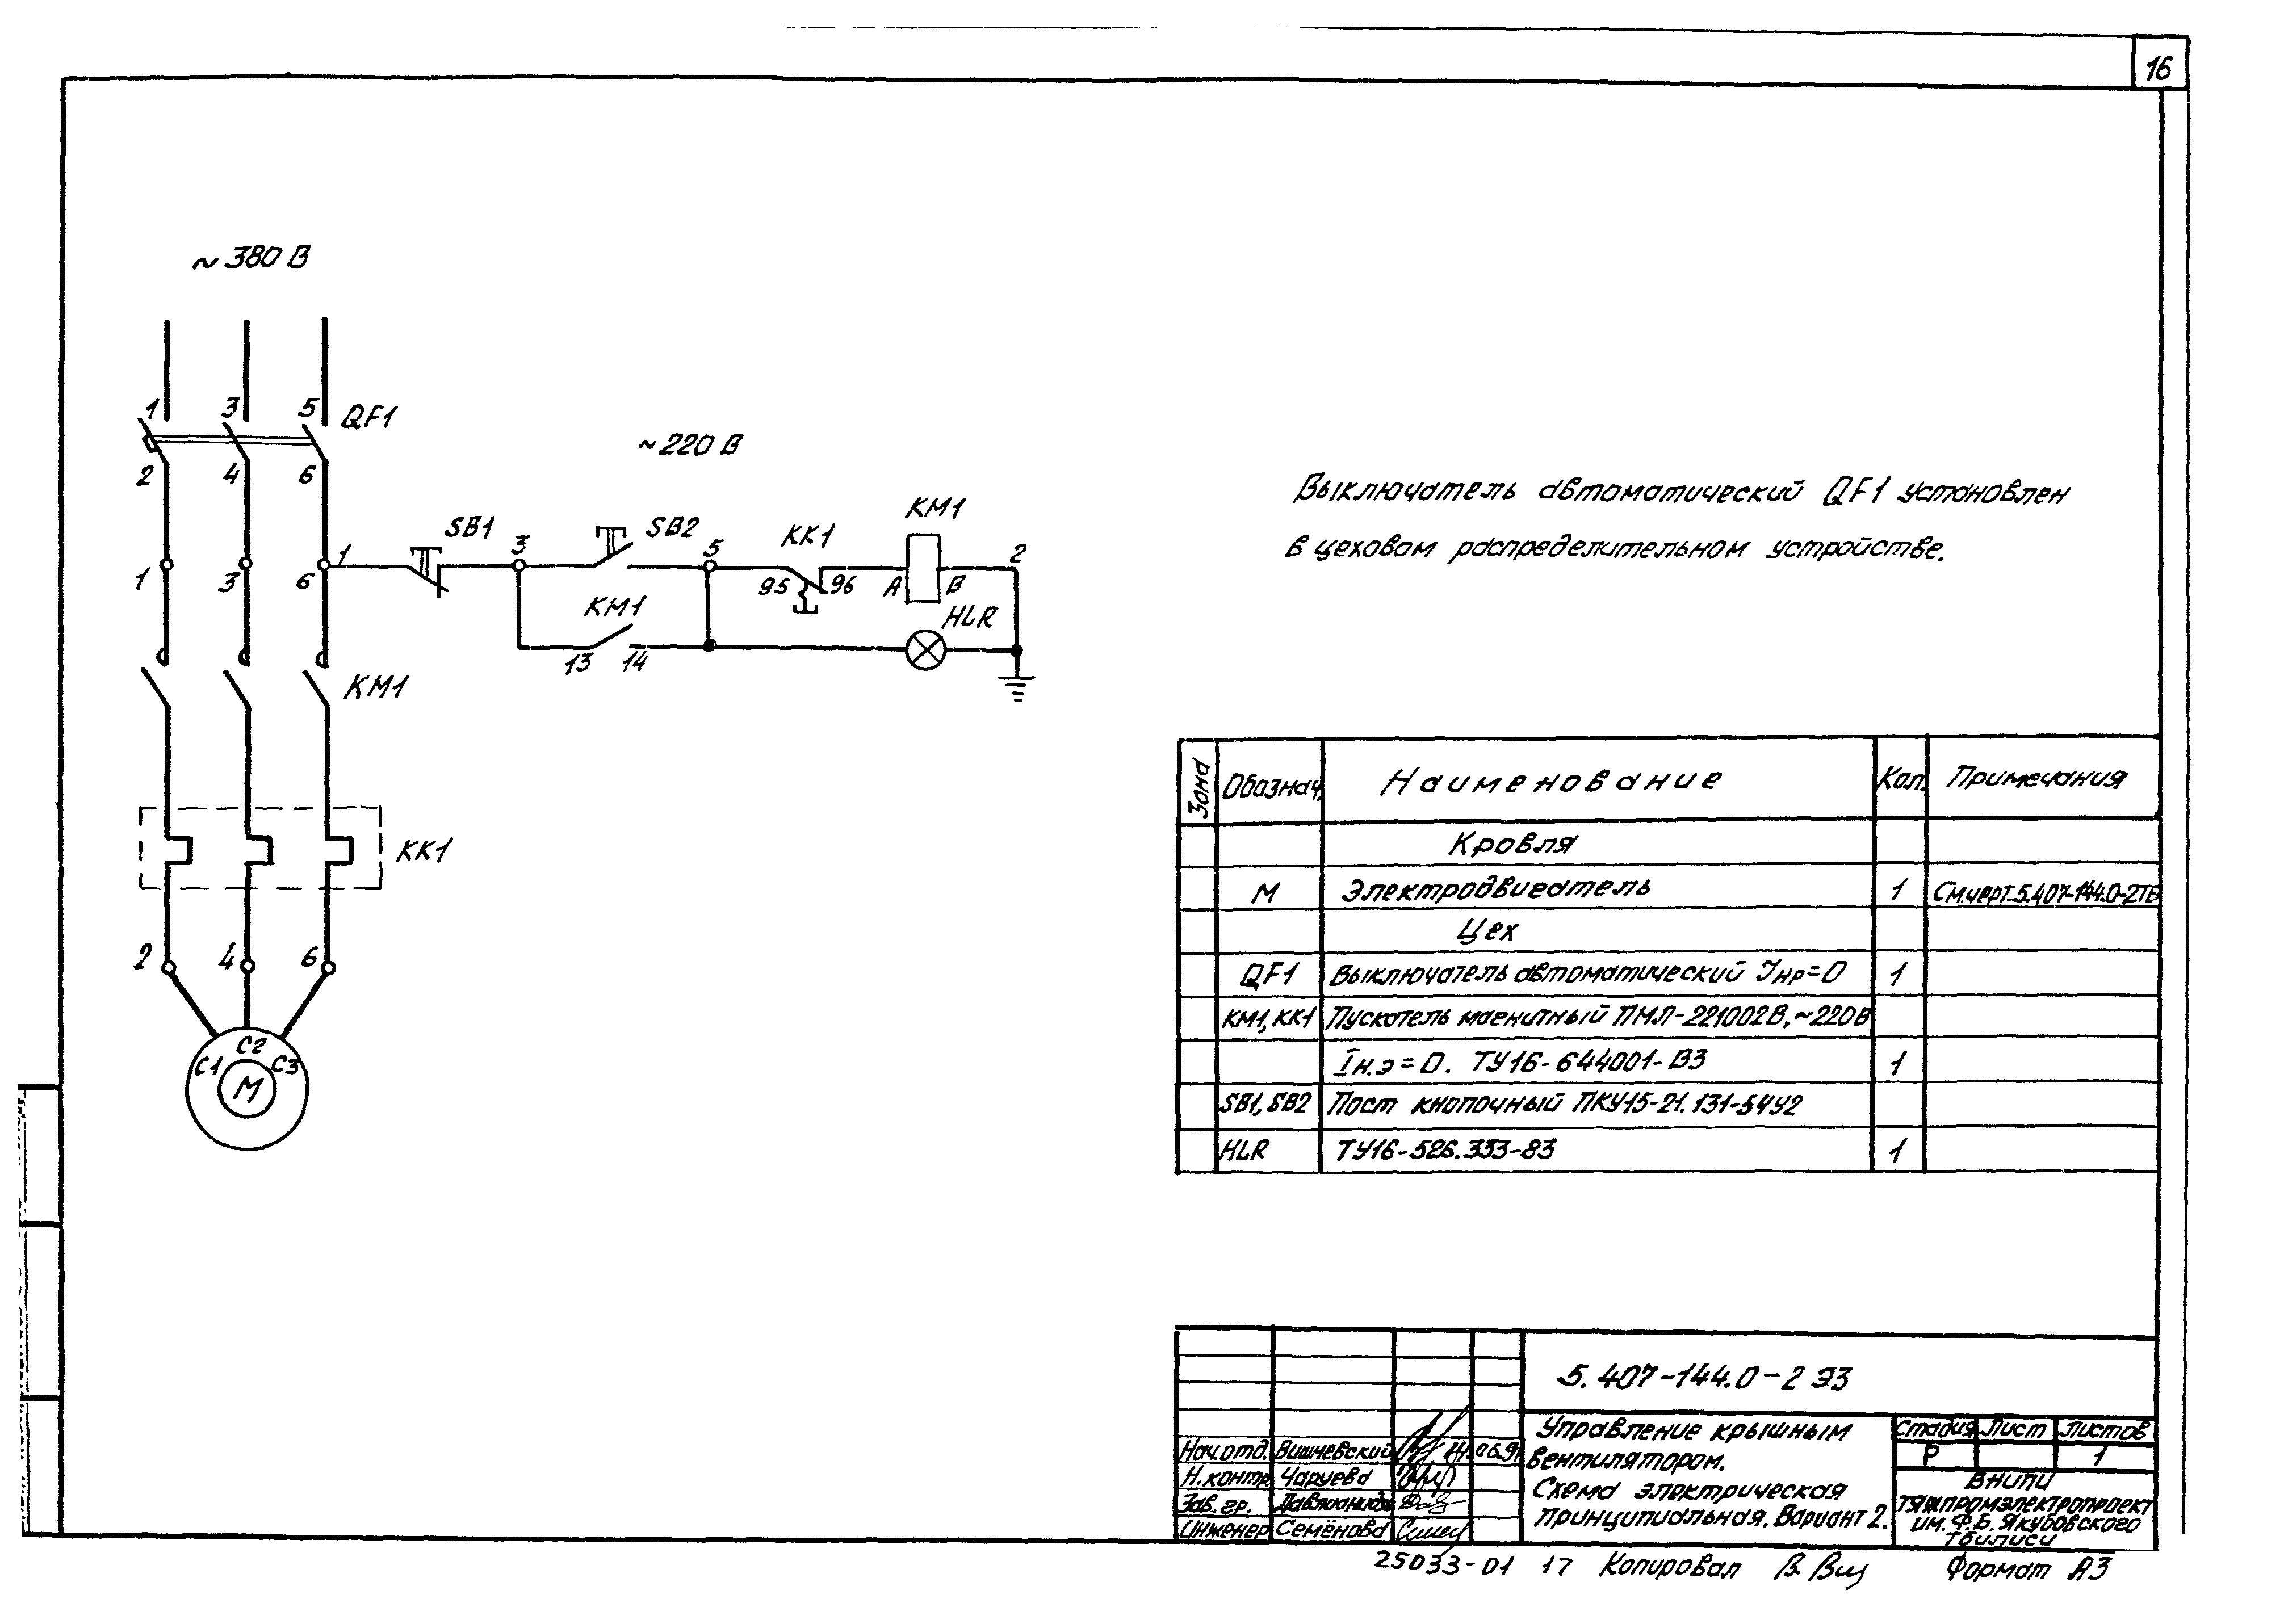 16
~ 380 В
1 3 5 QF1
2 4 6
~ 220 В
SB1 3 SB2 5 KK1 KM1 2
1
1 3 6
95 96 A B
KM1 HLR
13 14
KM1
KK1
2 4 6
C1 C2 C3
M
Выключатель автоматический QF1 установлен
в цеховом распределительном устройстве.
Зона Обознач. Наименование Кол. Примечания
Кровля
М Электродвигатель 1 См.черт.5.407-144.0-2ТБ
Цех
QF1 Выключатель автоматический Iнр=0 1
KM1, KK1 Пускатель магнитный ПМЛ-221002В, ~220В
Iн.э = 0. ТУ16-644001-83 1
SB1, SB2 Пост кнопочный ПКУ15-21.131-54У2
HLR ТУ16-526.333-83 1
5.407-144.0-2 Э3
Управление крышным
вентилятором.
Схема электрическая
принципиальная. Вариант 2.
Стадия Лист Листов
Р 1
ВНИПИ
Тяжпромэлектропроект
им. Ф.Б. Якубовского
Тбилиси
Нач.отд. Вишневский 06.91
Н.контр. Чаруева
Зав.гр. Давлианидзе
Инженер Семёнова
25033-01 17 Копировал Формат А3